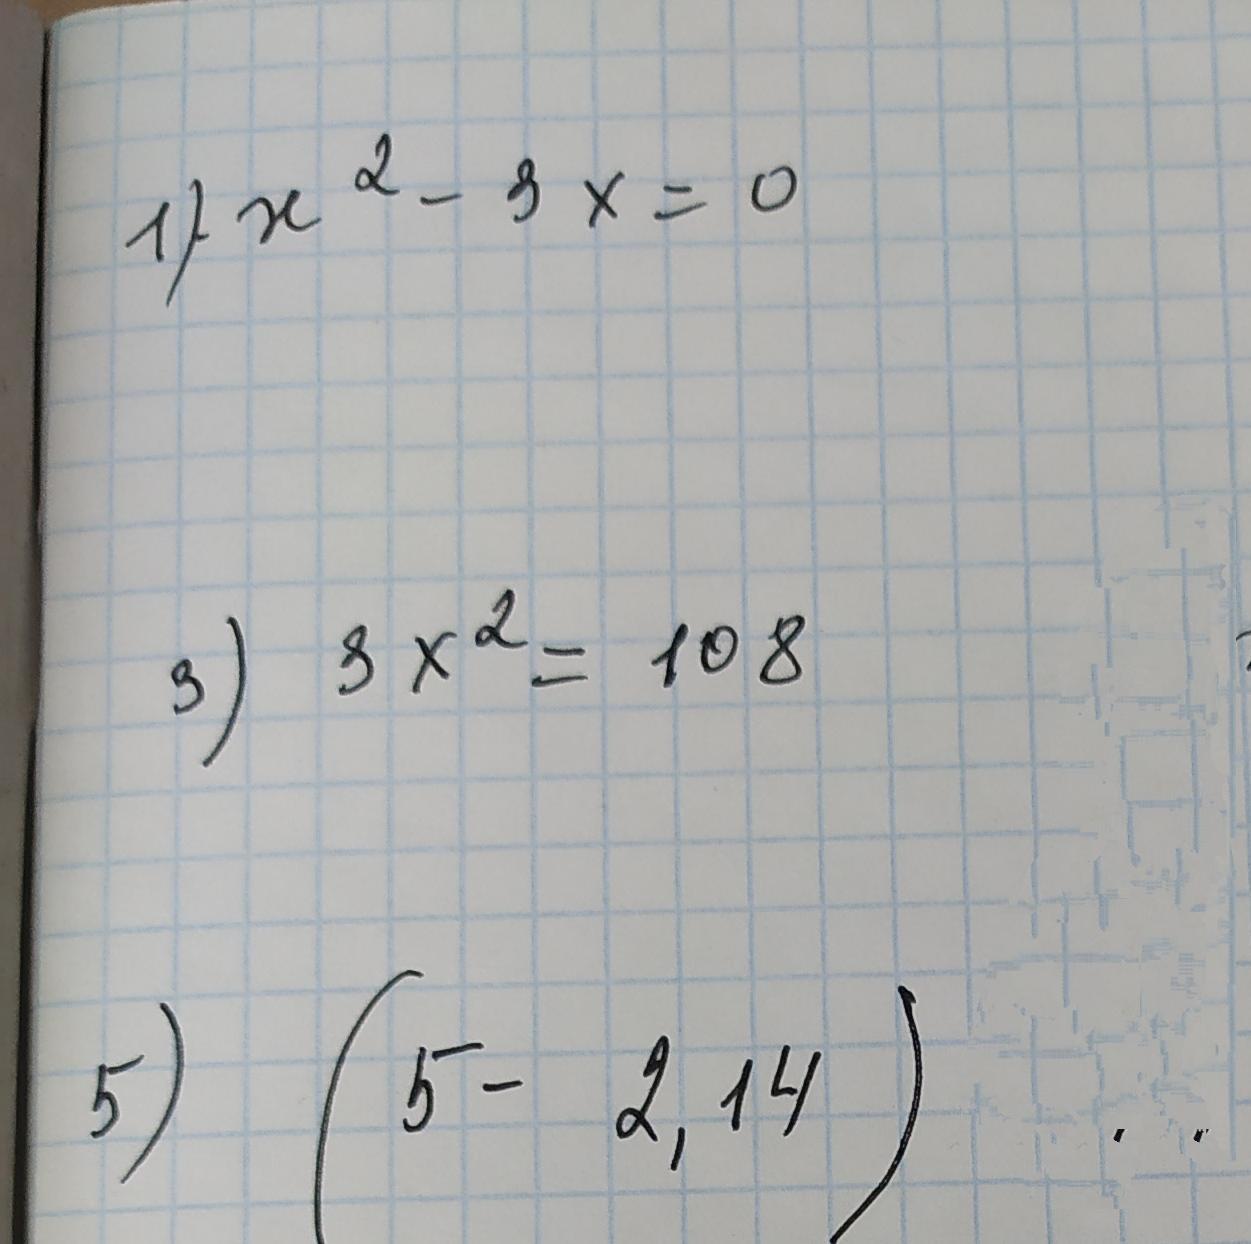 1) x² - 3x = 0
3) 3x² = 108
5) (5 - 2,14)